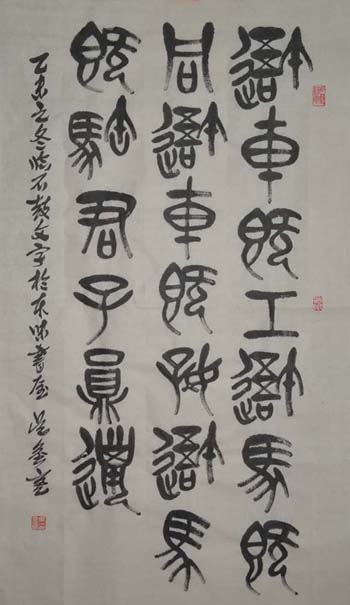 吾車既工吾馬既
同吾車既好吾馬
既駂君子員邋
乙未之冬臨石鼓文字於味書屋